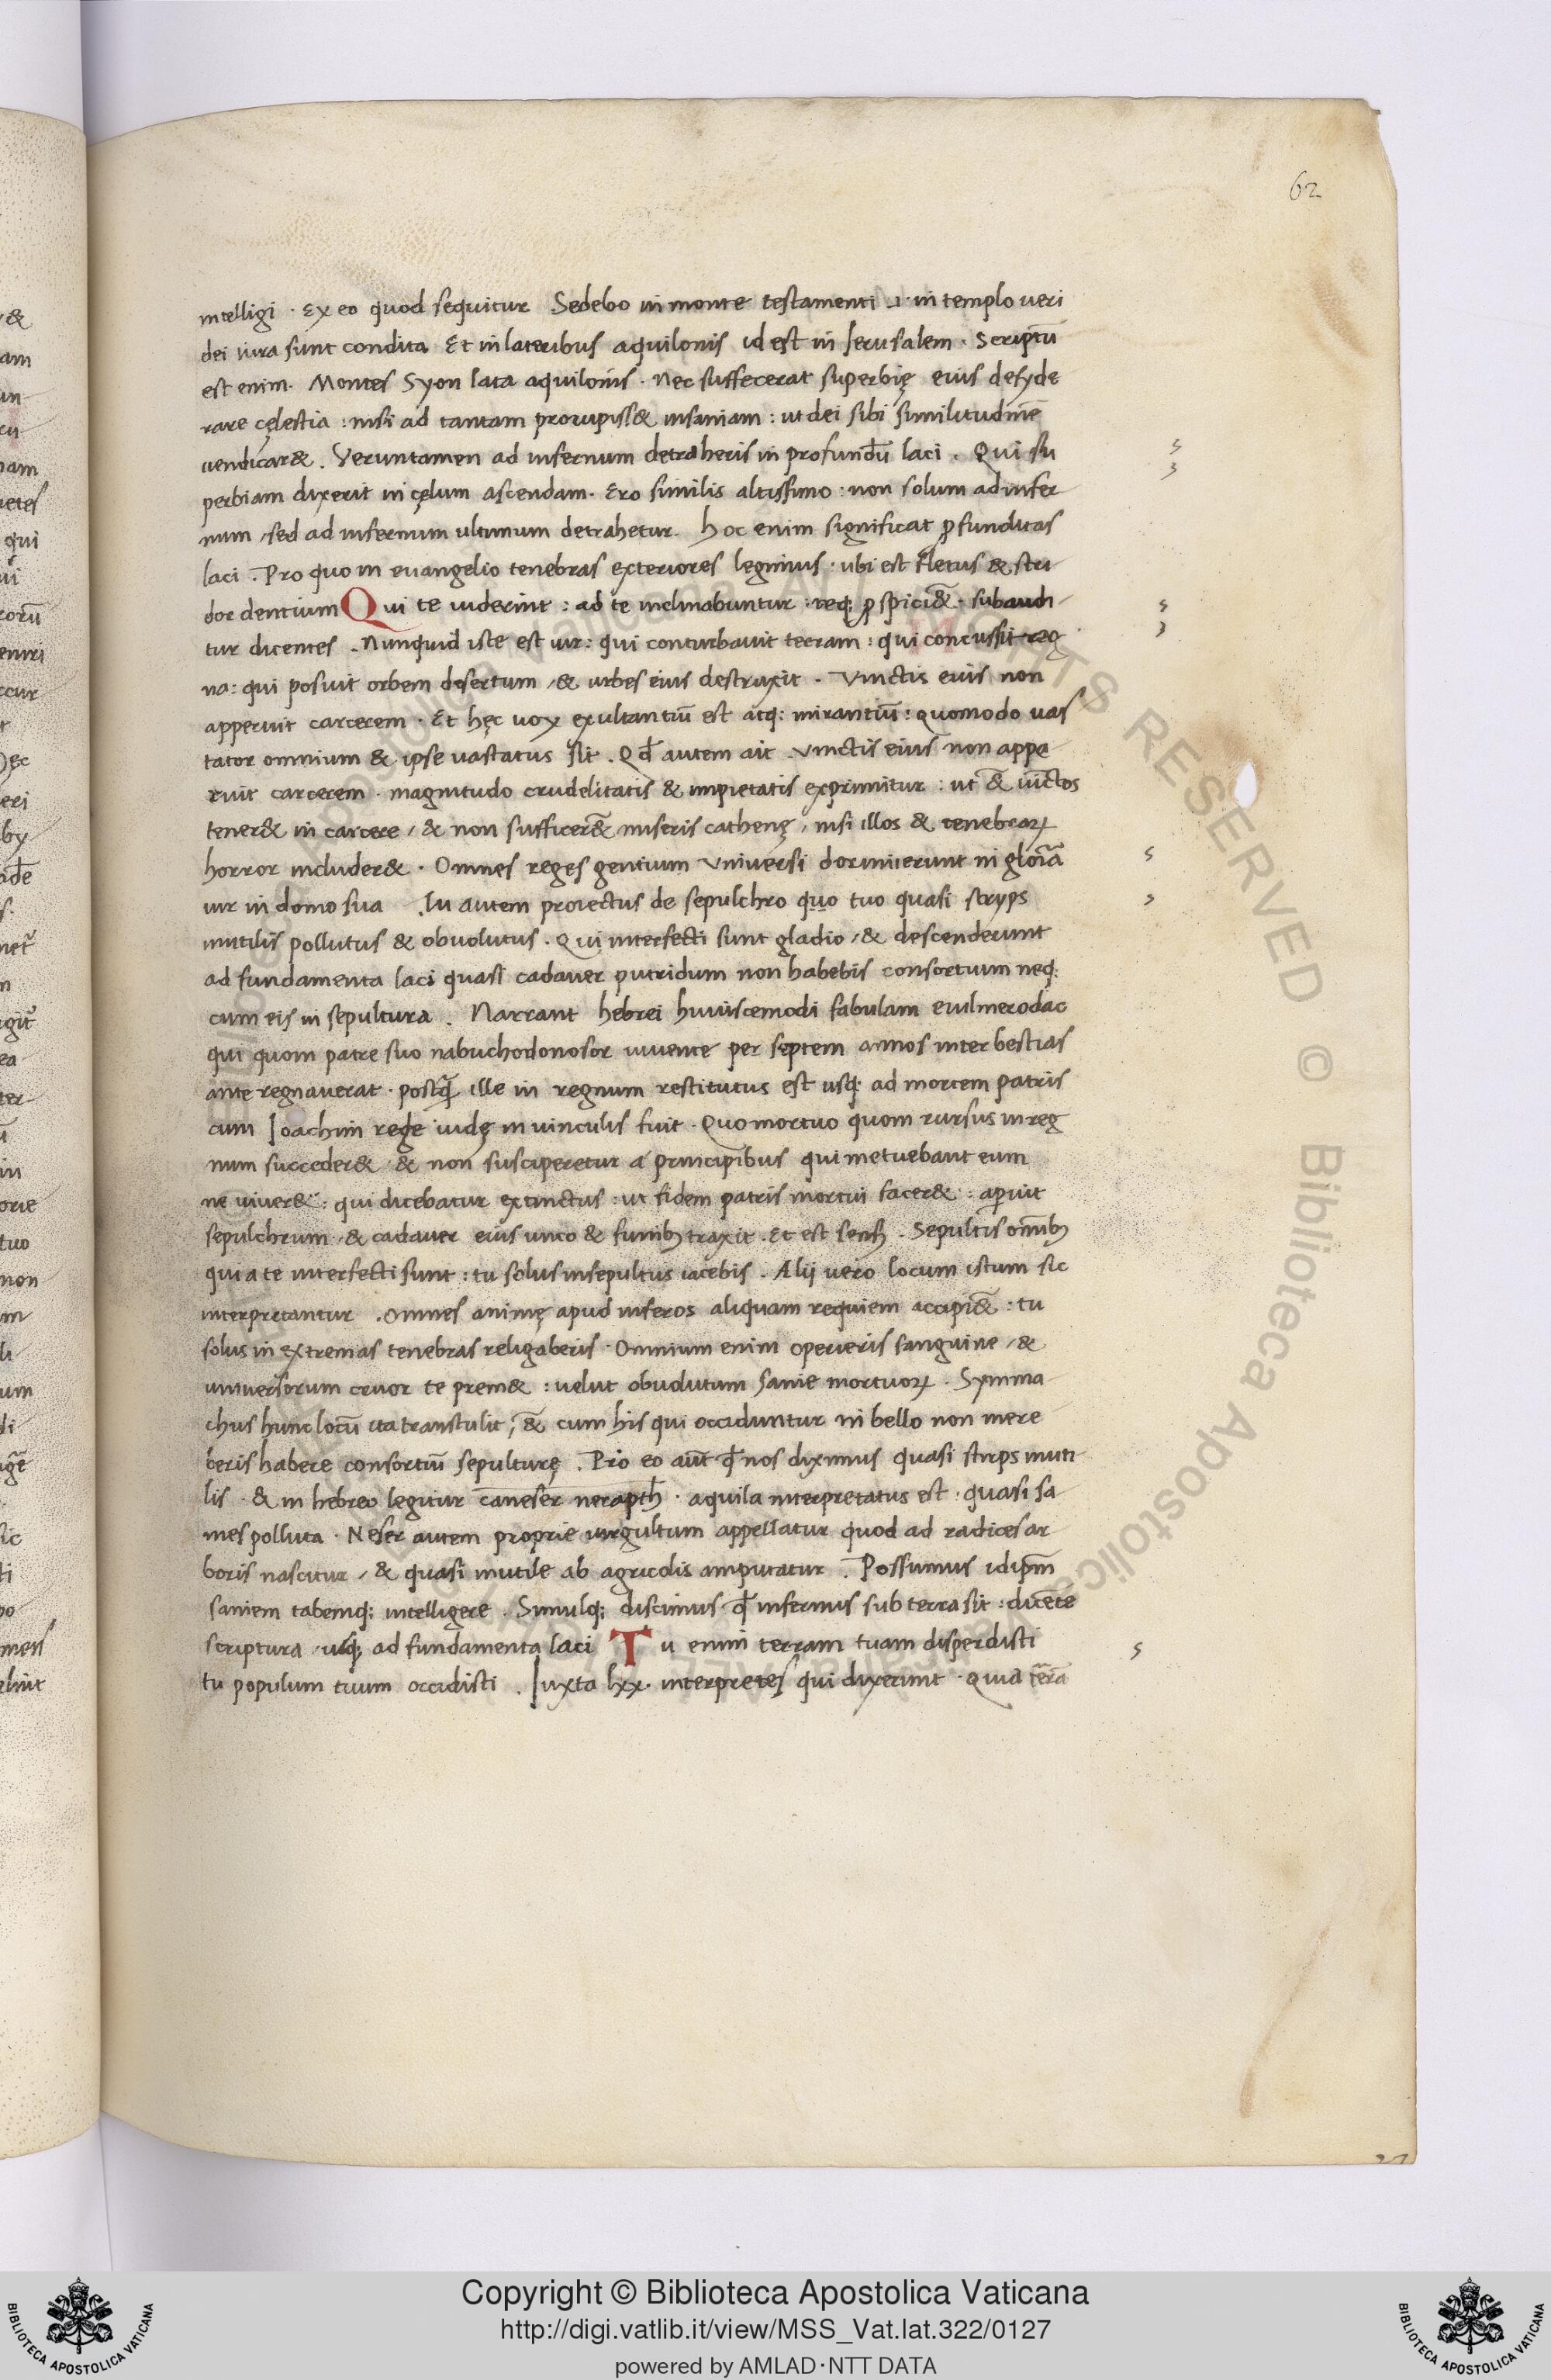 62
intelligi · Ex eo quod sequitur Sedebo in monte testamenti .i. in templo ueri
dei iura sunt condita Et in lateribus aquilonis id est in Ierusalem · Scriptū
est enim · Montes Syon lata aquilonis · nec suffecerat superbię eius desyde
rare cęlestia : nisi ad tantam prorupiss& insaniam : ut dei sibi similitudinē
uendicar& . Veruntamen ad infernum detraheris in profundū laci . Qui su
perbiam dixerit in cęlum ascendam · Ero similis altissimo : non solum ad infer
num / sed ad infernum ultimum detrahetur . hoc enim significat ꝓfunditas
laci . Pro quo in euangelio tenebras exteriores legimus · ubi est fletus & stri
dor dentium Qui te uiderint : ad te inclinabuntur : teq; ꝓspiciē& · subaudi
tur dicentes . Nunquid iste est uir : qui conturbauit terram : qui concussit reg
na : qui posuit orbem desertum / & urbes eius destruxit . Vinctis eius non
apperuit carcerem · Et hęc uox exultantiū est atq; mirantiū : quomodo uas
tator omnium & ipse uastatus sit . Qđ autem ait . Vinctis eius non appe
ruit carcerem · magnitudo crudelitatis & impietatis exprimitur : ut & uīctos
tener& in carcere / & non sufficerē& miseris cathenę / nisi illos & tenebraꝝ
horror includer& · Omnes reges gentium Vniuersi dormierunt in gloīa
uir in domo sua . Tu autem proiectus de sepulchro quo tuo quasi stryps
inutilis pollutus & obuolutus . Qui interfecti sunt gladio / & descenderunt
ad fundamenta laci quasi cadauer putridum non habebis consortium neq;
cum eis in sepultura . Narrant hebrei huiuscemodi fabulam euilmerodac
qui quom patre suo nabuchodonosor uiuente per septem annos inter bestias
ante regnauerat · postq̄ ille in regnum restitutus est usq; ad mortem patris
cum Ioachim rege iudę in uinculis fuit · Quo mortuo quom rursus in reg
num succeder& / & non susciperetur a principibus qui metuebant eum
ne uiuer& : qui dicebatur extinctus : ut fidem patris mortui facer& : aperuit
sepulchrum / & cadauer eius unco & funibꝫ traxit . Et est sensꝫ . Sepultis omībꝫ
qui a te interfecti sunt : tu solus insepultus iacebis . Alij uero locum istum sic
interpretantur . omnes animę apud inferos aliquam requiem accipiē& : tu
solus in extremas tenebras religaberis · Omnium enim operieris sanguine / &
uniuersorum cruor te prem& : uelut obuolutum sanie mortuoꝝ . Symma
chus hunc locū ita transtulit ; & cum his qui occiduntur in bello non mere
beris habere consortiū sepulturę . Pro eo aūt qđ nos diximus quasi stirps inuti
lis · & in hebreo legitur caneser nerapth · aquila interpretatus est · quasi sa
mes polluta · Neser autem proprie uirgultum appellatur quod ad radices ar
boris nascitur / & quasi inutile ab agricolis amputatur . Possumus idipm̄
saniem tabemq; intelligere . Simulq; discimus qđ infernus sub terra sit : dicēte
scriptura / usq; ad fundamenta laci Tu enim terram tuam disperdisti
tu populum tuum occidisti . Iuxta lxx . interpretes qui dixerunt · Quia tērā
Copyright © Biblioteca Apostolica Vaticana
http://digi.vatlib.it/view/MSS_Vat.lat.322/0127
powered by AMLAD·NTT DATA